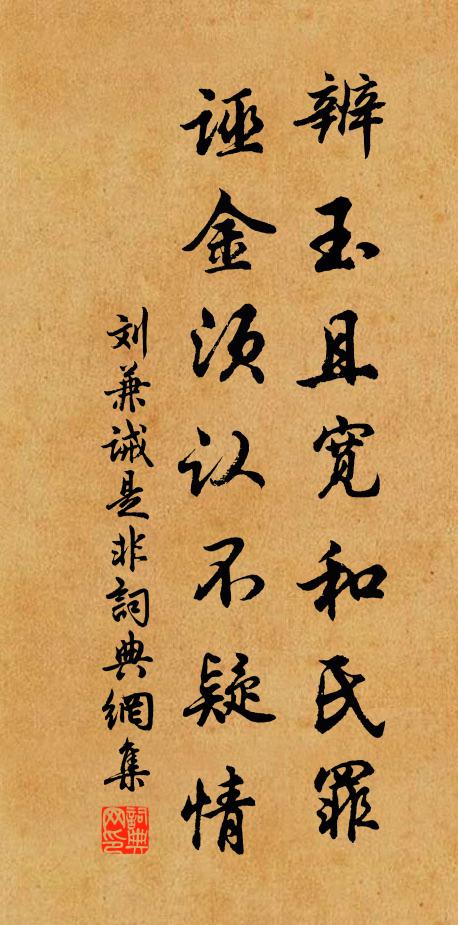 辨玉且宽和氏罪
诬金须认不疑情
刘兼诫是非詞典網集
詞典网印